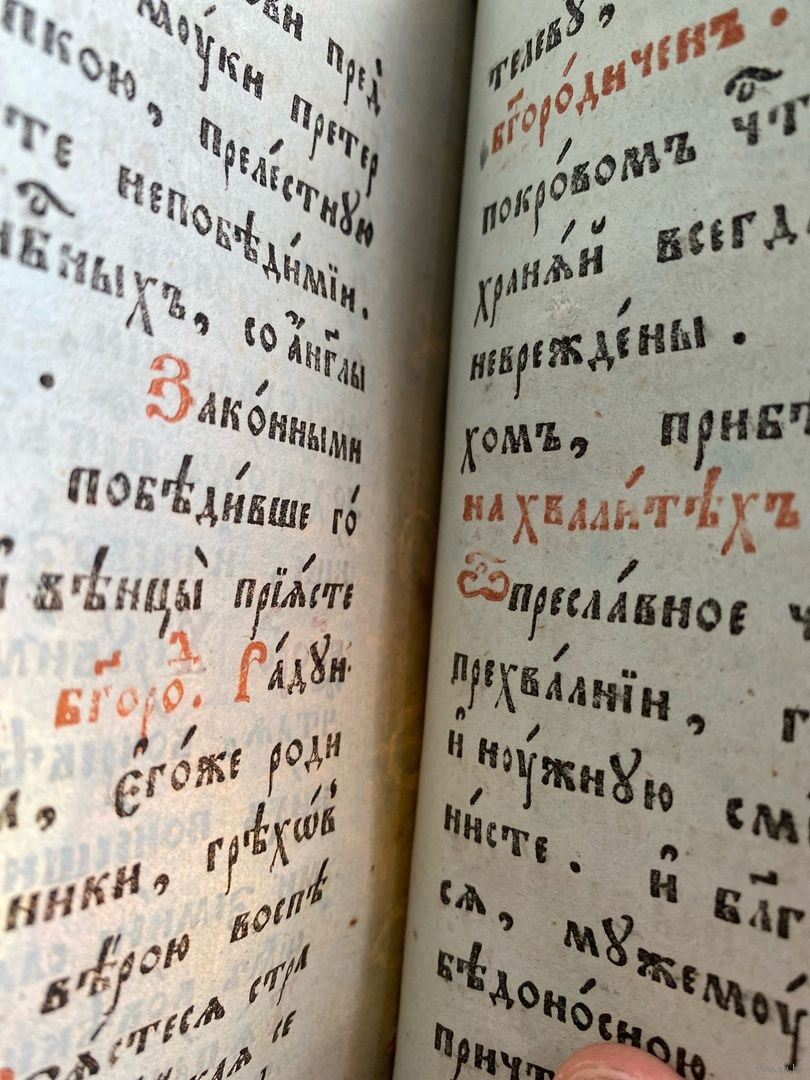 моу́ки претер
пкою, преле́стнꙋю
те непобѣди́мїи.
со а҆́нг҃лы
Зако́нными
побѣди́вше го́
вѣнцы̀ прїѧ́сте
бг҃оро. Ра́дꙋи
Е҆го́же роди
ники, грѣхѡ́в
вѣ́рою воспѣ
телевꙋ,
бг҃оро́диченъ.
покро́вомъ
хранѧ́й всегд
невреже́ны.
хомъ, прибѣ
на хвали́тѣхъ
Ѿпресла́вное ч
прехва́лнїи, г
и҆ ноу́жнꙋю см
ни́сте. и҆ бл҃г
сѧ, мꙋжемоу́
бѣдоно́сною
причт